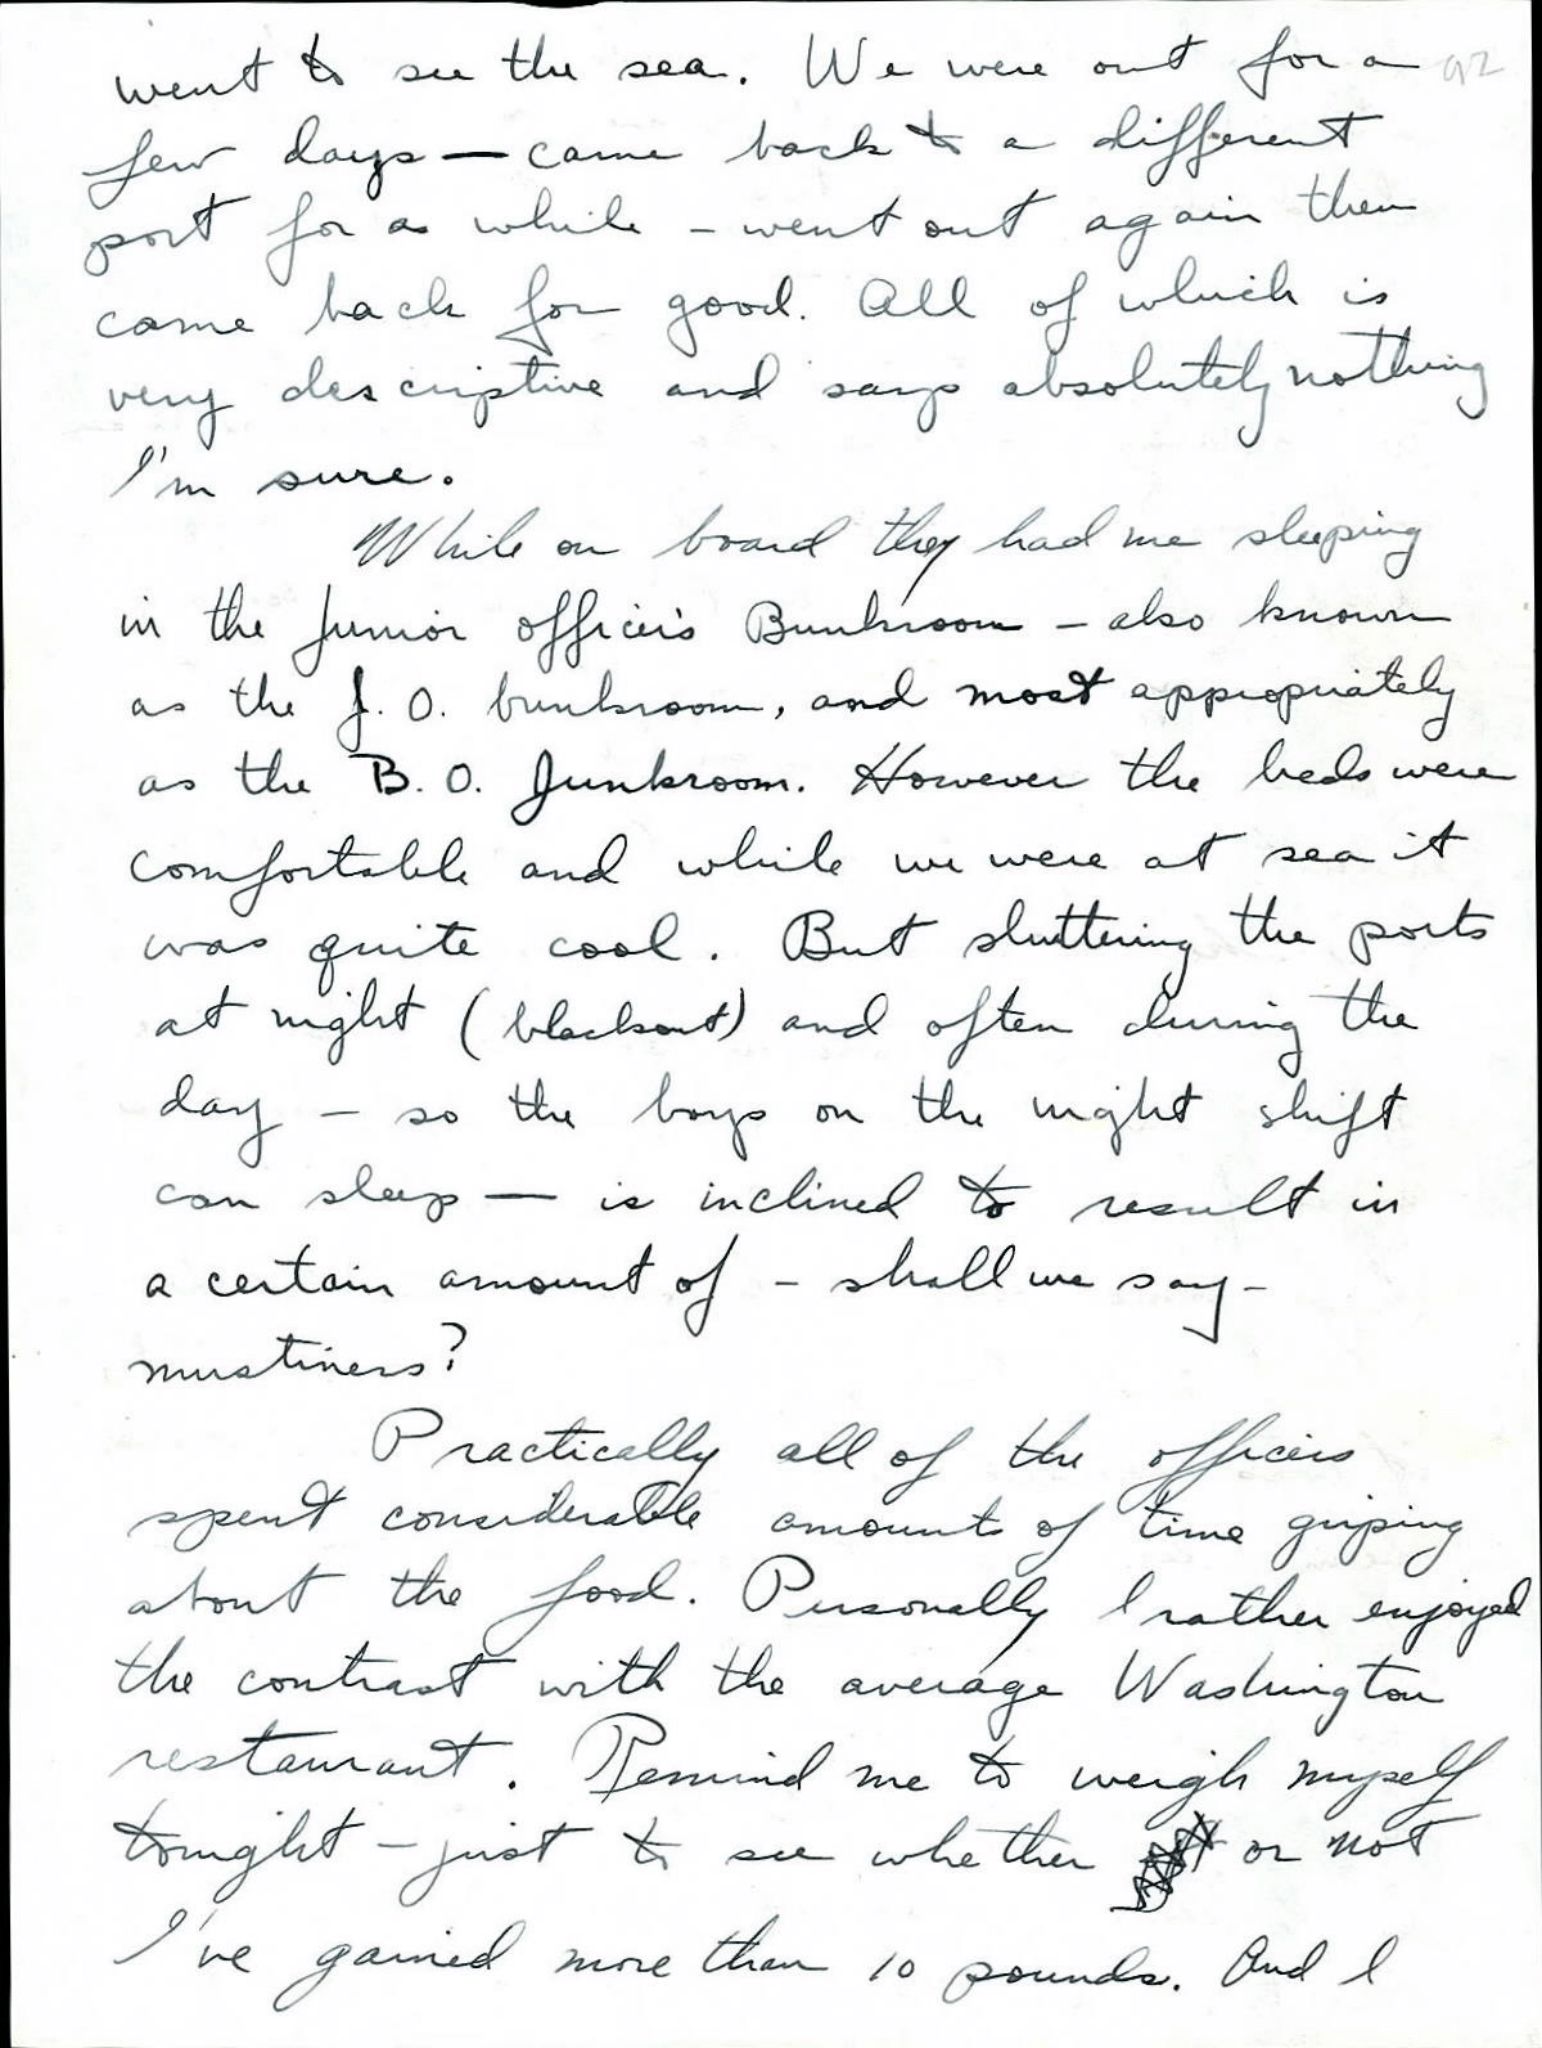 went to see the sea. We were out for a 92
few days — came back to a different
port for a while – went out again then
came back for good. All of which is
very descriptive and says absolutely nothing
I'm sure.
While on board they had me sleeping
in the Junior officer's Bunkroom – also known
as the J. O. bunkroom, and most appropriately
as the B. O. Junkroom. However the beds were
comfortable and while we were at sea it
was quite cool. But shuttering the ports
at night (blackout) and often during the
day – so the boys on the night shift
can sleep — is inclined to result in
a certain amount of – shall we say –
mustiness?
Practically all of the officers
spent considerable amounts of time griping
about the food. Personally I rather enjoyed
the contrast with the average Washington
restaurant. Remind me to weigh myself
tonight – just to see whether or not
I've gained more than 10 pounds. And I